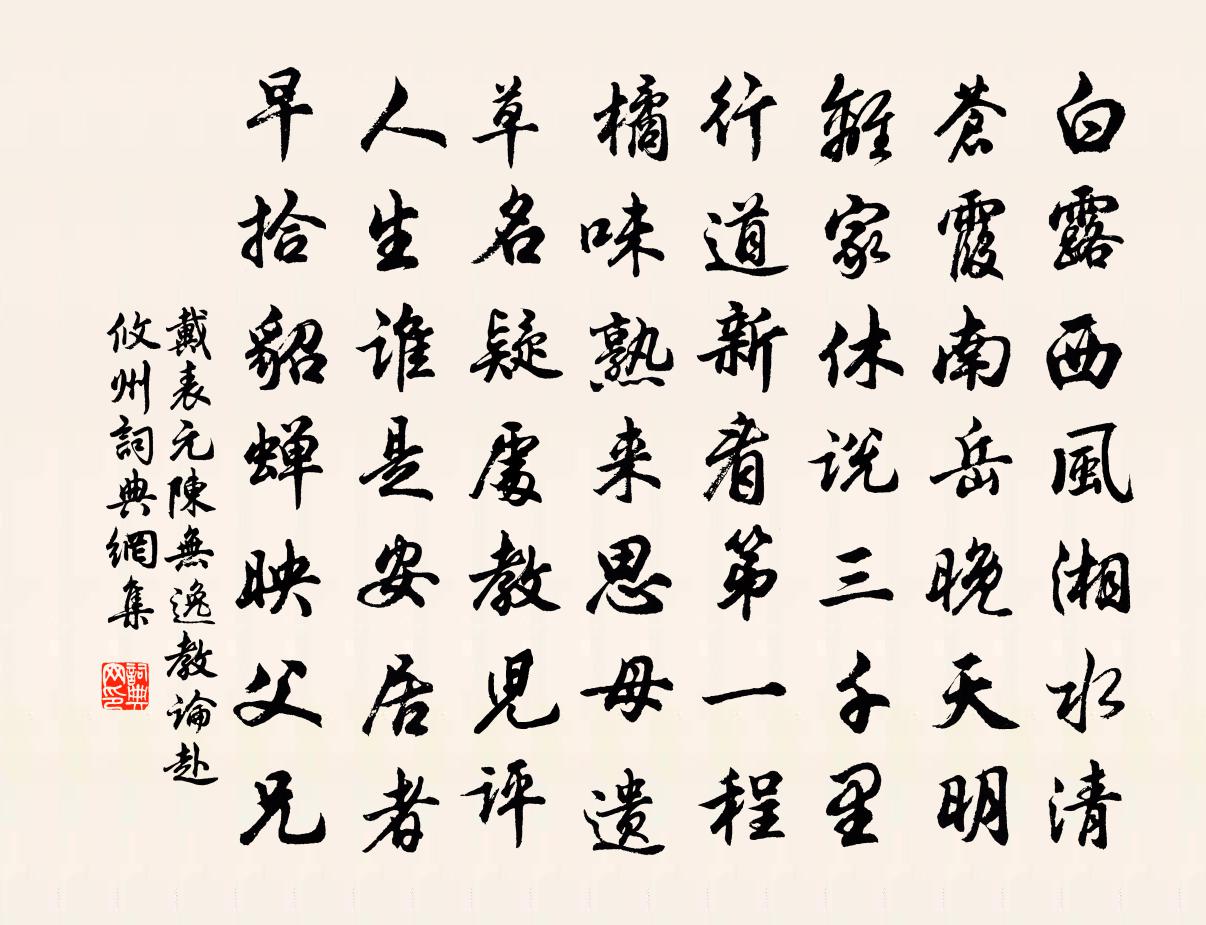 白露西風湘水清
蒼霞南岳晚天明
離家休说三千里
行道新看第一程
橘味熟来思母遗
草名疑處教児評
人生谁是安居者
早拾貂蝉映父兄
戴表元陳無逸教論赴
攸州詞典網集
詞典网印